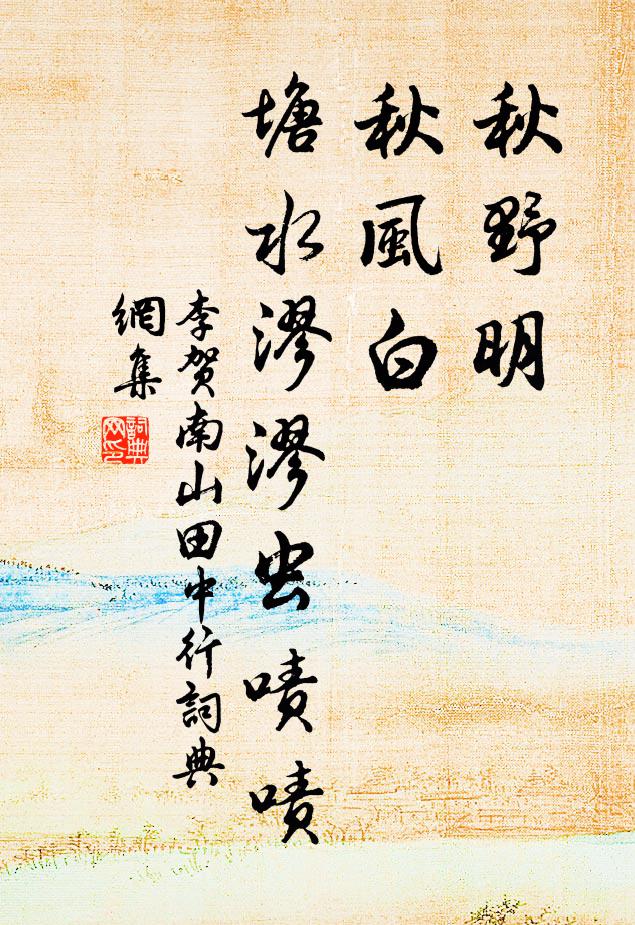 秋野明
秋風白
塘水漻漻虫嘖嘖
李賀南山田中行詞典
網集
詞典
网印